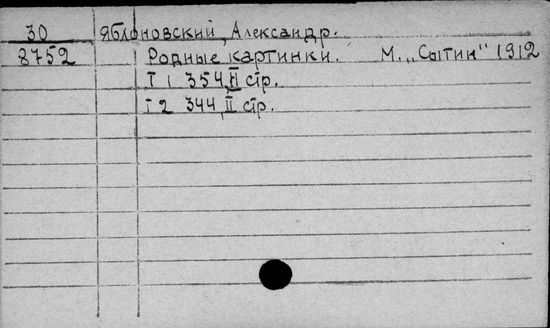 30 Яблоновский, Александр.
8752 Родные картинки. М. „Сытин" 1912
Т 1 354, II стр.
Т 2 344, II стр.